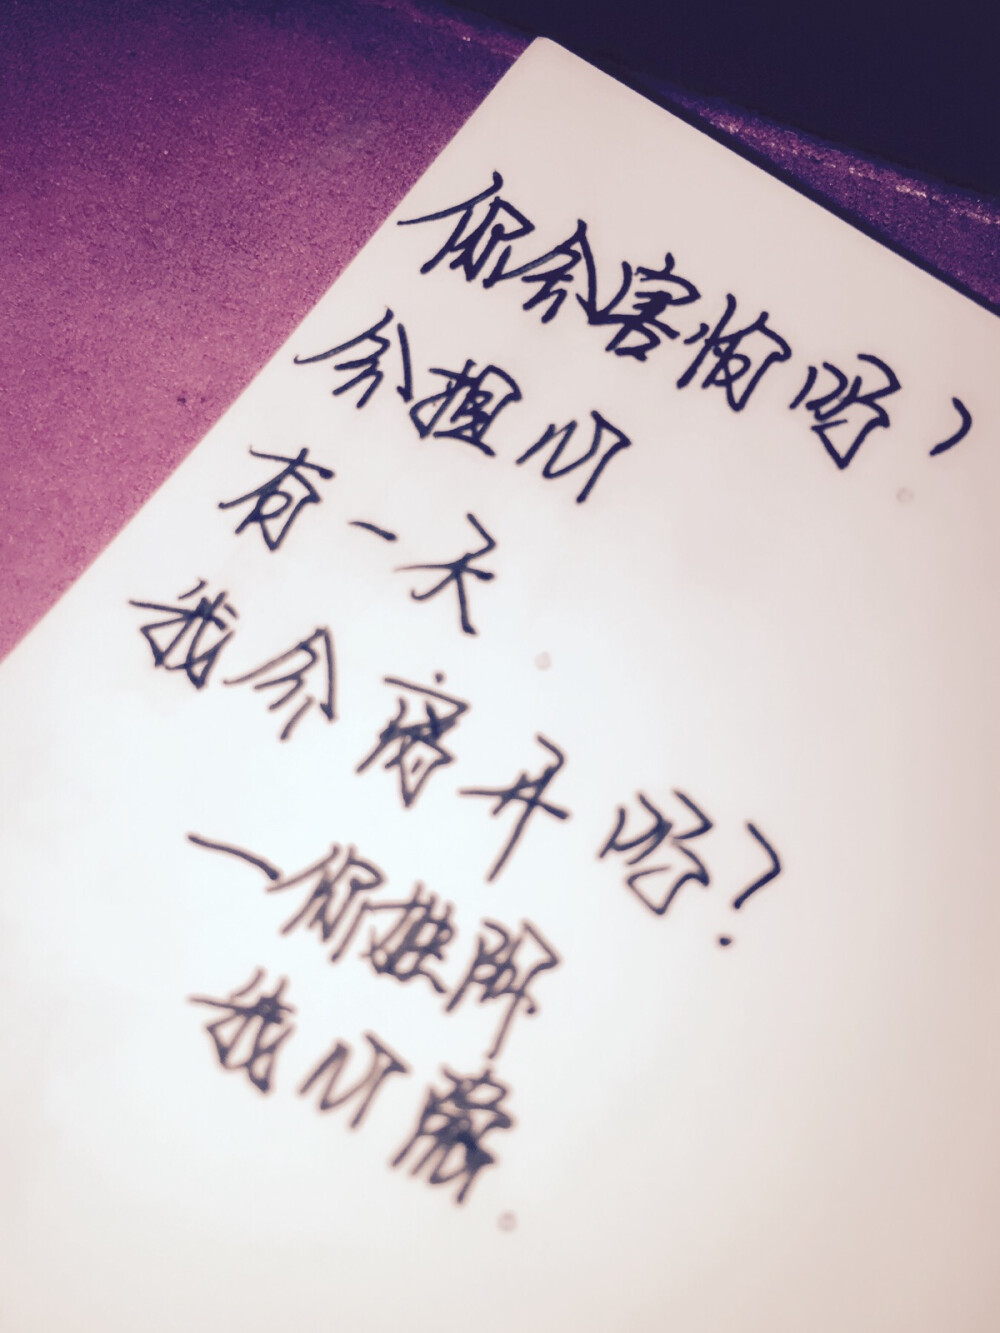 你会害怕吗?
会担心
有一天
我会离开吗?
一你推开
我心窝